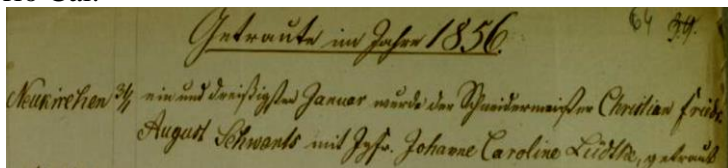 64 34.
Getraute im Jahre 1856.
Neukirchen 31/1 ein und dreißigsten Januar wurde der Schneidermeister Christian Friedr.
August Schwants mit Jgfr. Johanne Caroline Lüdtke, getraut